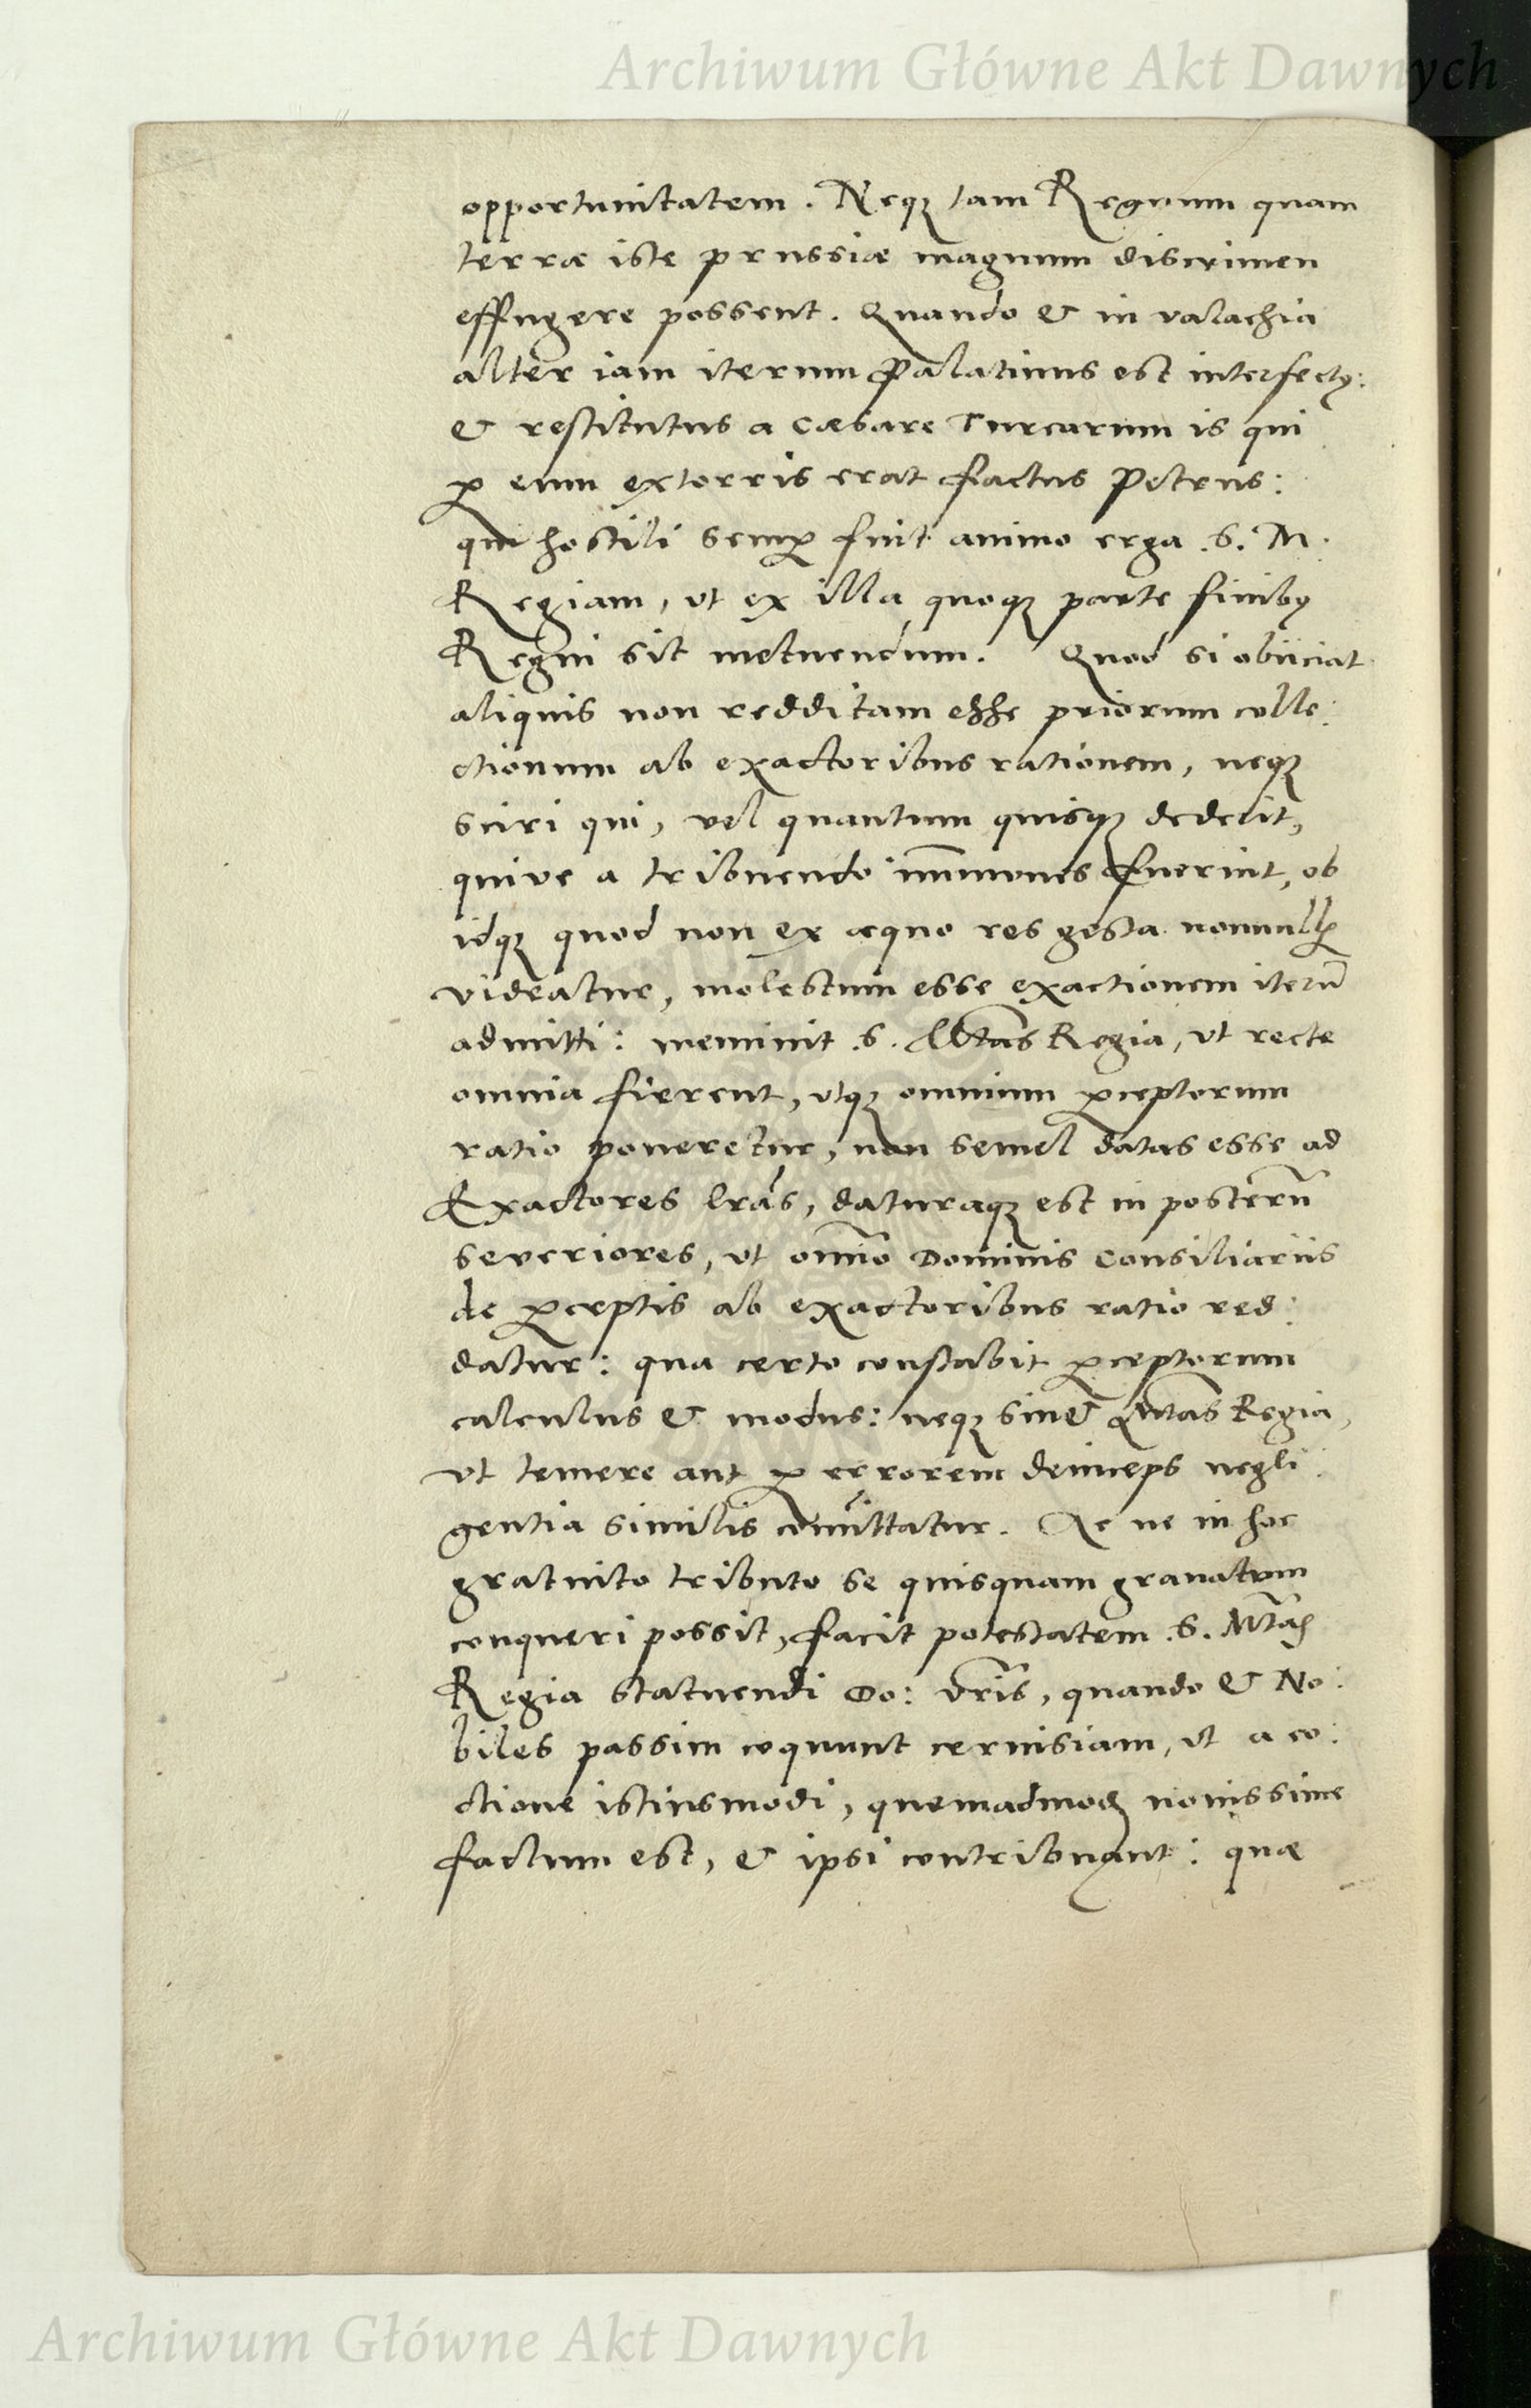 Archiwum Główne Akt Dawnych
opportunitatem. Neqꝫ tam Regnum quam
terræ iste prussiæ magnum discrimen
effugere possent. Quando & in valachia
alter iam iterum Palatinus est interfectꝰ:
& restitutus a Cæsare Turcarum is qui
ꝑ eum extorris erat factus Petrus:
qui hostili semꝑ fuit animo erga .S. M.
Regiam, ut ex illa quoqꝫ parte finibꝰ
Regni sit metuendum. Quod si obiiciat
aliquis non redditam esse priorum colle:
ctionum ab exactoribus rationem, neqꝫ
sciri qui, vel quantum quisqꝫ dederit,
quive a tribuendo im̄unes fuerint, ob
idqꝫ quod non ex æquo res gesta nonnullꝭ
videatur, molestum esse exactionem iterū
admitti: meminit .S. Mtas Regia, ut recte
omnia fierent, utqꝫ omnium ꝑceptorum
ratio poneretur, non semel datas esse ad
Exactores lr̃as, daturaqꝫ est in posterū
severiores, ut om̃io Dominis Consiliariis
de ꝑceptis ab exactoribus ratio red:
datur: qua certo constabit ꝑceptorum
calculus & modus: neqꝫ sinet Mtas Regia,
ut temere aut ꝑ errorem deinceps negli:
gentia similis com̃ittatur. Ac ne in hoc
gratuito tributo se quisquam gravatum
conqueri possit, facit potestatem .S. Mtas
Regia statuendi Do: vr̃is, quando & No:
biles passim coquunt cervisiam, ut a co:
ctione istiusmodi, quemadmodꝫ novissime
factum est, & ipsi contribuant: quæ
Archiwum Główne Akt Dawnych